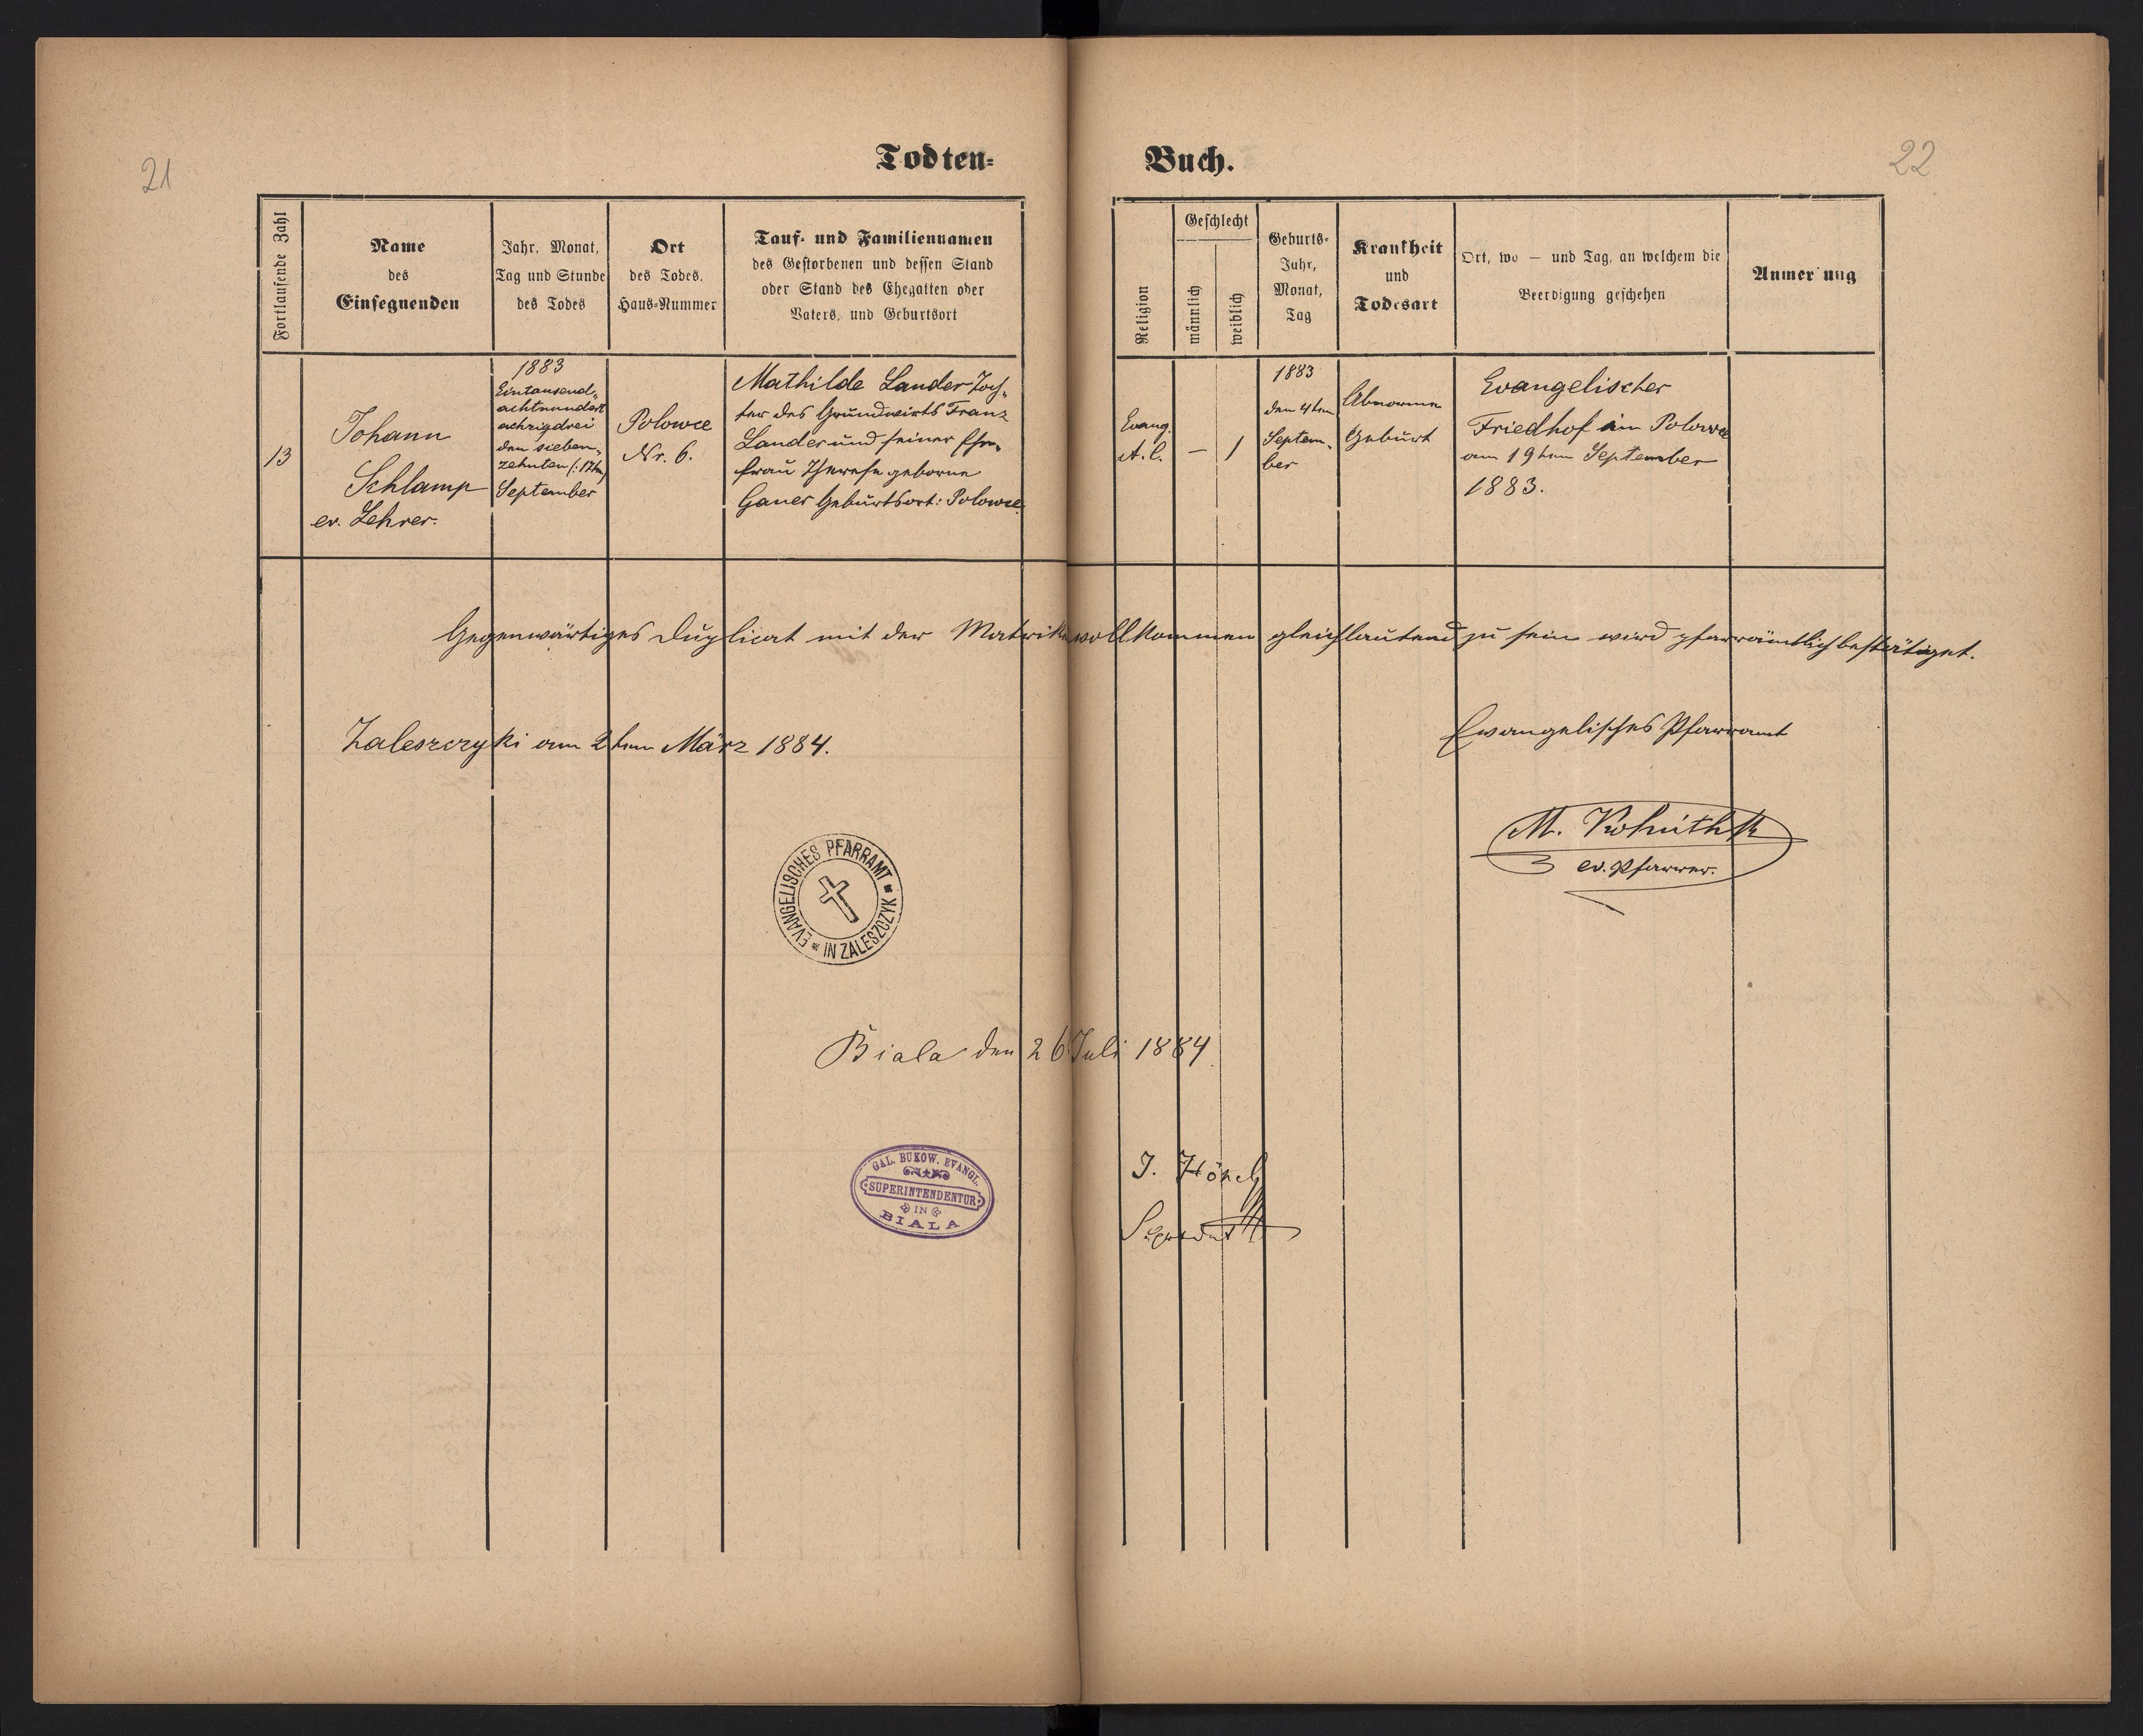 21
22
Todten-
Buch.
Fortlaufende Zahl
Name
des
Einsegnenden
Jahr, Monat,
Tag und Stunde
des Todes
Ort
des Todes.
Haus-Nummer
Tauf- und Familiennamen
des Gestorbenen und dessen Stand
oder Stand des Ehegatten oder
Vaters, und Geburtsort
Religion
Geschlecht
männlich
weiblich
Geburts-
Jahr,
Monat,
Tag
Krankheit
und
Todesart
Ort, wo — und Tag, an welchem die
Beerdigung geschehen
Anmer ung
13
Johann
Schlamp
ev. Lehrer.
1883
Eintausend-
achthundert
achzigdrei
den sieben-
zehnten (: 17ten)
September
Polowce
Nr. 6.
Mathilde Lander Toch-
ter des Grundwirts Franz
Lander und seiner Ehe-
frau Therese geborne
Ganer Geburtsort: Polowce
Evang.
A. C.
—
1
1883
den 4ten
Septem-
ber
Abnorme
Geburt
Evangelischer
Friedhof in Polowce
am 19ten September
1883.
Gegenwärtiges Duplicat mit der Matrike vollkommen gleichlautend zu sein wird pfarrämtlich bestätiget.
Zaleszczyki am 2ten März 1884.
Evangelisches Pfarramt
M.
ev. Pfarrer.
EVANGELISCHES PFARRAMT
IN ZALESZCZYK
Biala den 26 Juli 1884
GAL. BUKOW. EVANGL.
SUPERINTENDENTUR
IN
BIALA
J. Hönel